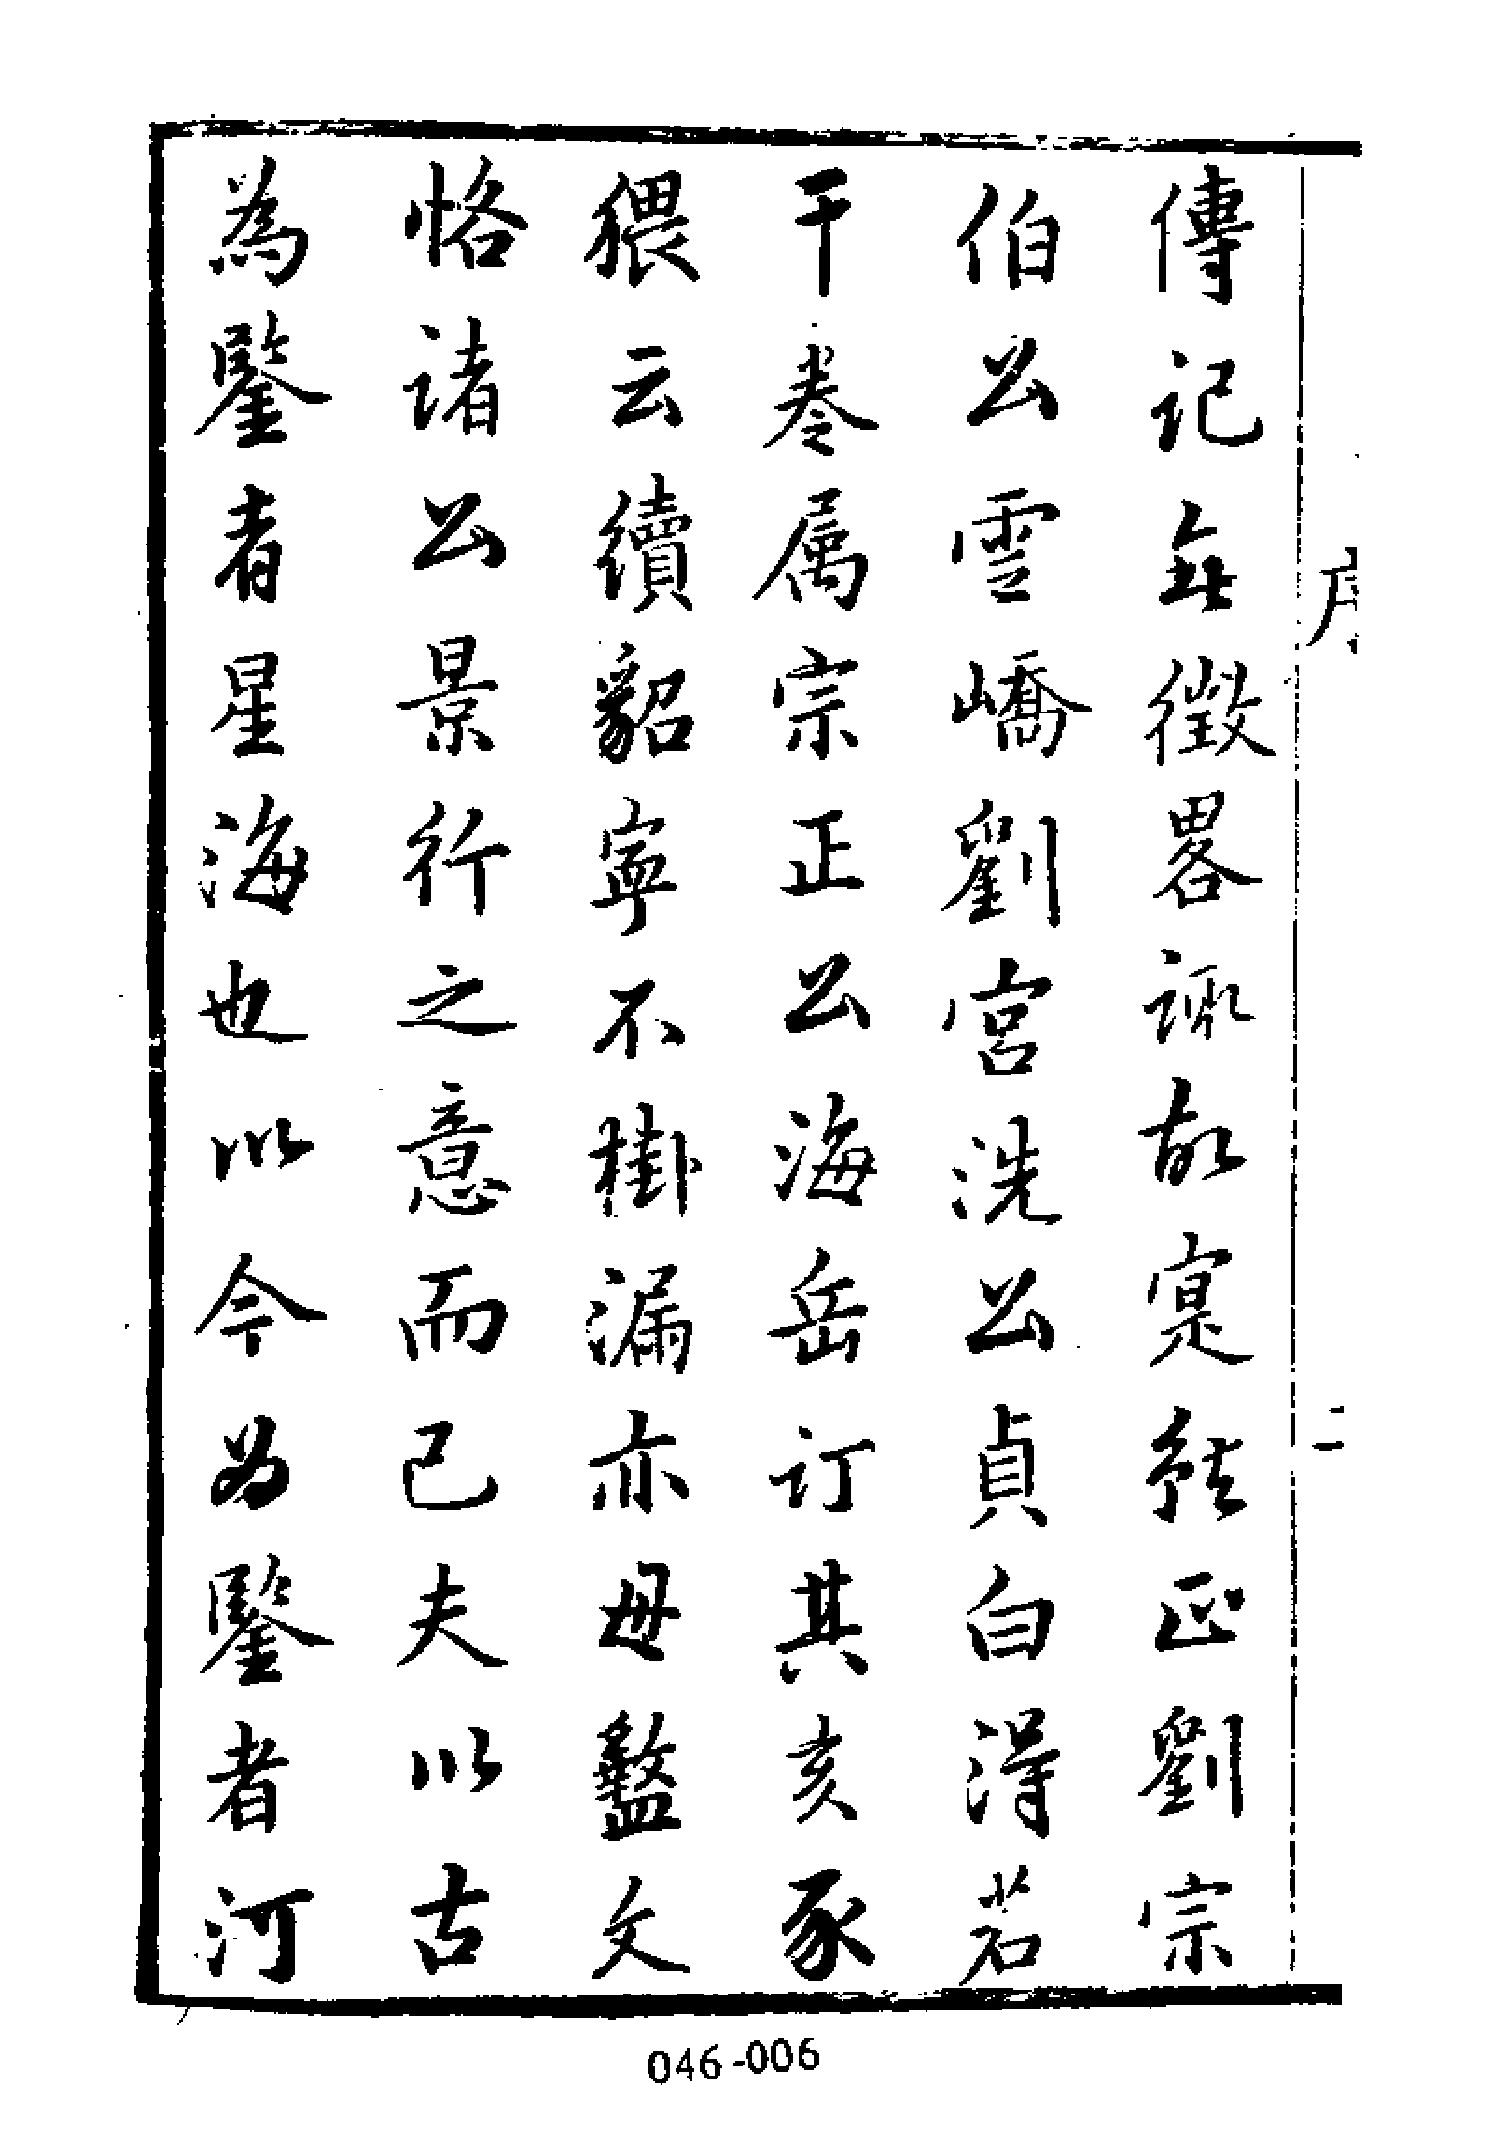 序
二
傳記無徵畧諏故寔就正劉宗
伯公雲嶠劉宮洗公貞白得若
干卷属宗正公海岳訂其亥豕
猥云續貂寧不掛漏亦毋盭文
恪諸公景行之意而已夫以古
為鑒者星海也以今為鑒者河
046-006